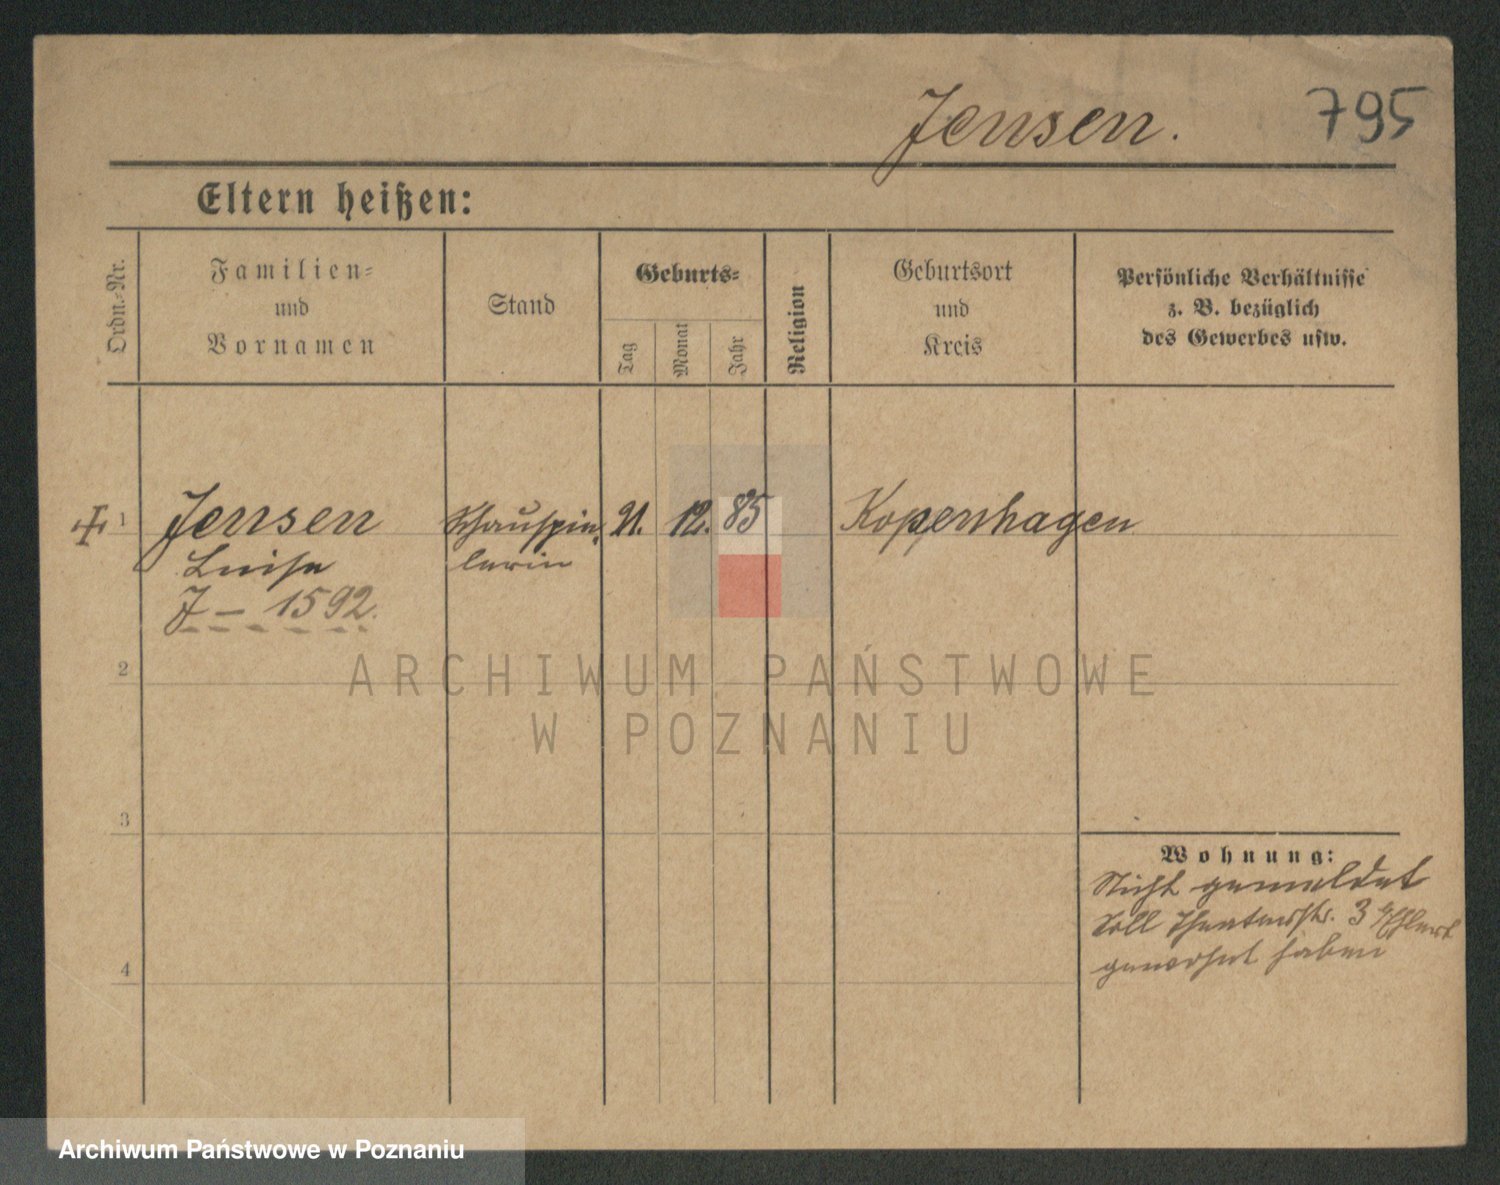 Jensen.
795
Eltern heißen:
Ordn.-Nr.
Familien-
und
Vornamen
Stand
Geburts-
Tag
Monat
Jahr
Religion
Geburtsort
und
Kreis
Persönliche Verhältnisse
z. B. bezüglich
des Gewerbes usw.
1
Jensen
Schauspie-
21.
12.
85
Kopenhagen
Luise
lerin
J – 1592.
2
ARCHIWUM PAŃSTWOWE
W POZNANIU
3
Wohnung:
Nicht gemeldet
Soll Theaterstr. 3
4
gewohnt haben
Archiwum Państwowe w Poznaniu